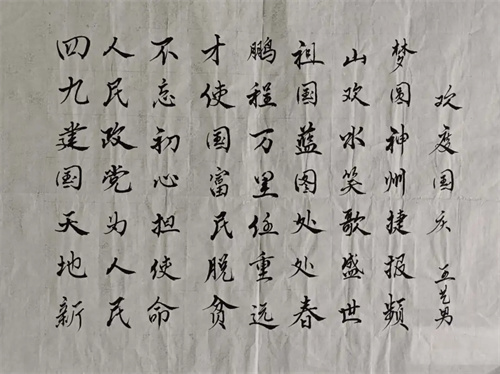 四九建国天地新
人民政党为人民
不忘初心担使命
才使国富民脱贫
鹏程万里任重远
祖国蓝图处处春
山欢水笑歌盛世
梦圆神州捷报频
欢度国庆 王艺男